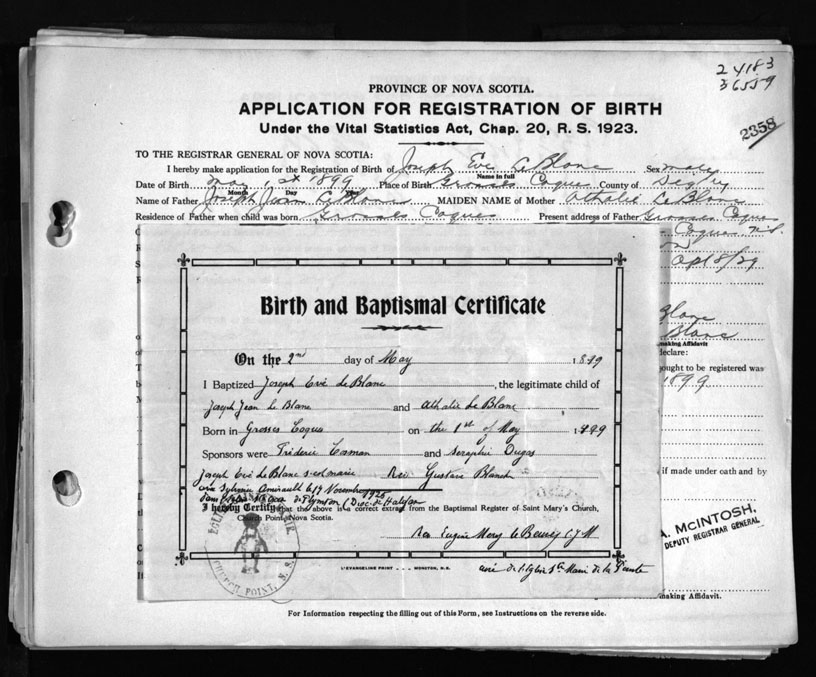 24183
36559
2358
PROVINCE OF NOVA SCOTIA.
APPLICATION FOR REGISTRATION OF BIRTH
Under the Vital Statistics Act, Chap. 20, R. S. 1923.
TO THE REGISTRAR GENERAL OF NOVA SCOTIA:
I hereby make application for the Registration of Birth of Joseph Eve LeBlanc Sex male
Name in full
Date of Birth May 1st 1899 Place of Birth Grosses Coques County of Digby
Month Day Year
Name of Father Joseph Jean LeBlanc MAIDEN NAME of Mother Athalie LeBlanc
Residence of Father when child was born Grosses Coques Present address of Father Grosses Coques
Coques N.S.
Apl 8/29
Blanc
Blanc
making Affidavit
declare:
ought to be registered was
1899
if made under oath and by
A. McINTOSH,
DEPUTY REGISTRAR GENERAL
making Affidavit.
Birth and Baptismal Certificate
On the 2nd day of May 1899
I Baptized Joseph Evé le Blanc, the legitimate child of
Joseph Jean Le Blanc and Athalie Le Blanc
Born in Grosses Coques on the 1st of May 1899
Sponsors were Frideric Comeau and Seraphie Dugas
Joseph Evé le Blanc Rev Gustave Blanche
Amirault le 19 Novembre 1926
de Plympton (Dioc. de Halifax
I hereby Certify that the above is a correct extract from the Baptismal Register of Saint Mary's Church,
Church Point, Nova Scotia.
Rev Eugène Mory Le C J M
curé de l'Eglise Ste Marie de la Pointe
CHURCH POINT, N. S.
L'EVANGELINE PRINT - - - MONCTON, N.B.
For Information respecting the filling out of this Form, see Instructions on the reverse side.